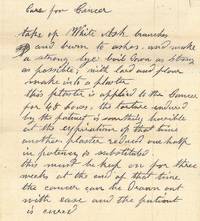 Cure for Cancer
take of White Ash branches
and burn to ashes, and make
a strong lye boil down as strong
as possible, with lard and flour
make into a plaster
this plaster is applied to the Cancer
for 48 hours, the torture endured
by the patient is something horrible
at the expiration of that time
another plaster reduced one half
in potency is substituted.
this must be kept on for three
weeks at the end of that time
the cancer can be drawn out
with ease and the patient
is cured